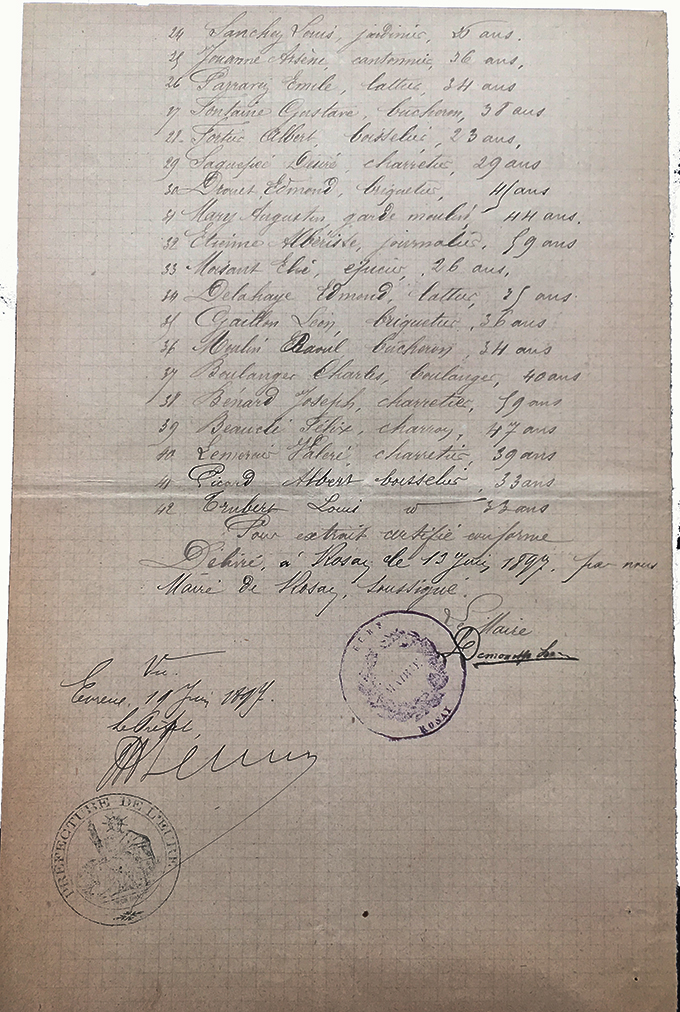 24 Louis, jardinier, ans.
25 Jouanne Arsène, cantonnier, 36 ans,
26 Emile, lattier, 34 ans
27 Fontaine Gustave, bûcheron, 38 ans
28 Fortier Albert, boisselier, 23 ans,
29 Désiré, charretier, 29 ans
30 Drouet, Edmond, briquetier, ans
31 Mary Augustin, garde moulin, 44 ans.
32 Etienne journalier, 59 ans
33 Elie, épicier, 26 ans,
34 Delahaye Edmond, lattier, 35 ans
35 Gaillon Léon, briquetier, 36 ans
36 Moulin Raoul bûcheron, 34 ans
37 Boulanger Charles, boulanger, 40 ans
38 Bénard Joseph, charretier, 59 ans
39 Félix, charron, 47 ans
40 charretier, 39 ans
41 Picard Albert boisselier, 33 ans
42 Trubert Louis 33 ans
Pour extrait certifié conforme
Délivré, à Rosay le 13 Juin 1897, par nous
Maire de Rosay, soussigné.
Le Maire
EURE
MAIRIE
ROSAY
Vu.
Evreux, 19 Juin 1897.
Le Préfet,
PRÉFECTURE DE L'EURE